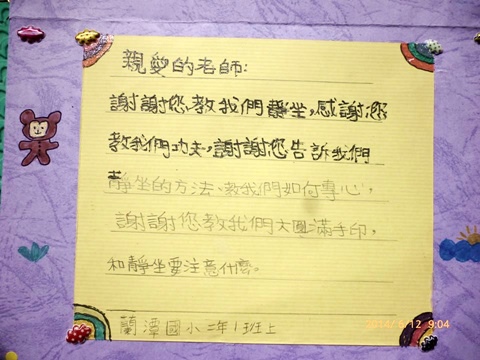 親愛的老師:
謝謝您、教我們靜坐,感謝您
教我們功夫,謝謝您告訴我們
靜坐的方法、教我們如何專心,
謝謝您教我們大圓滿手印,
和靜坐要注意什麼。
蘭潭國小二年1班上
2014/5/12 9:04